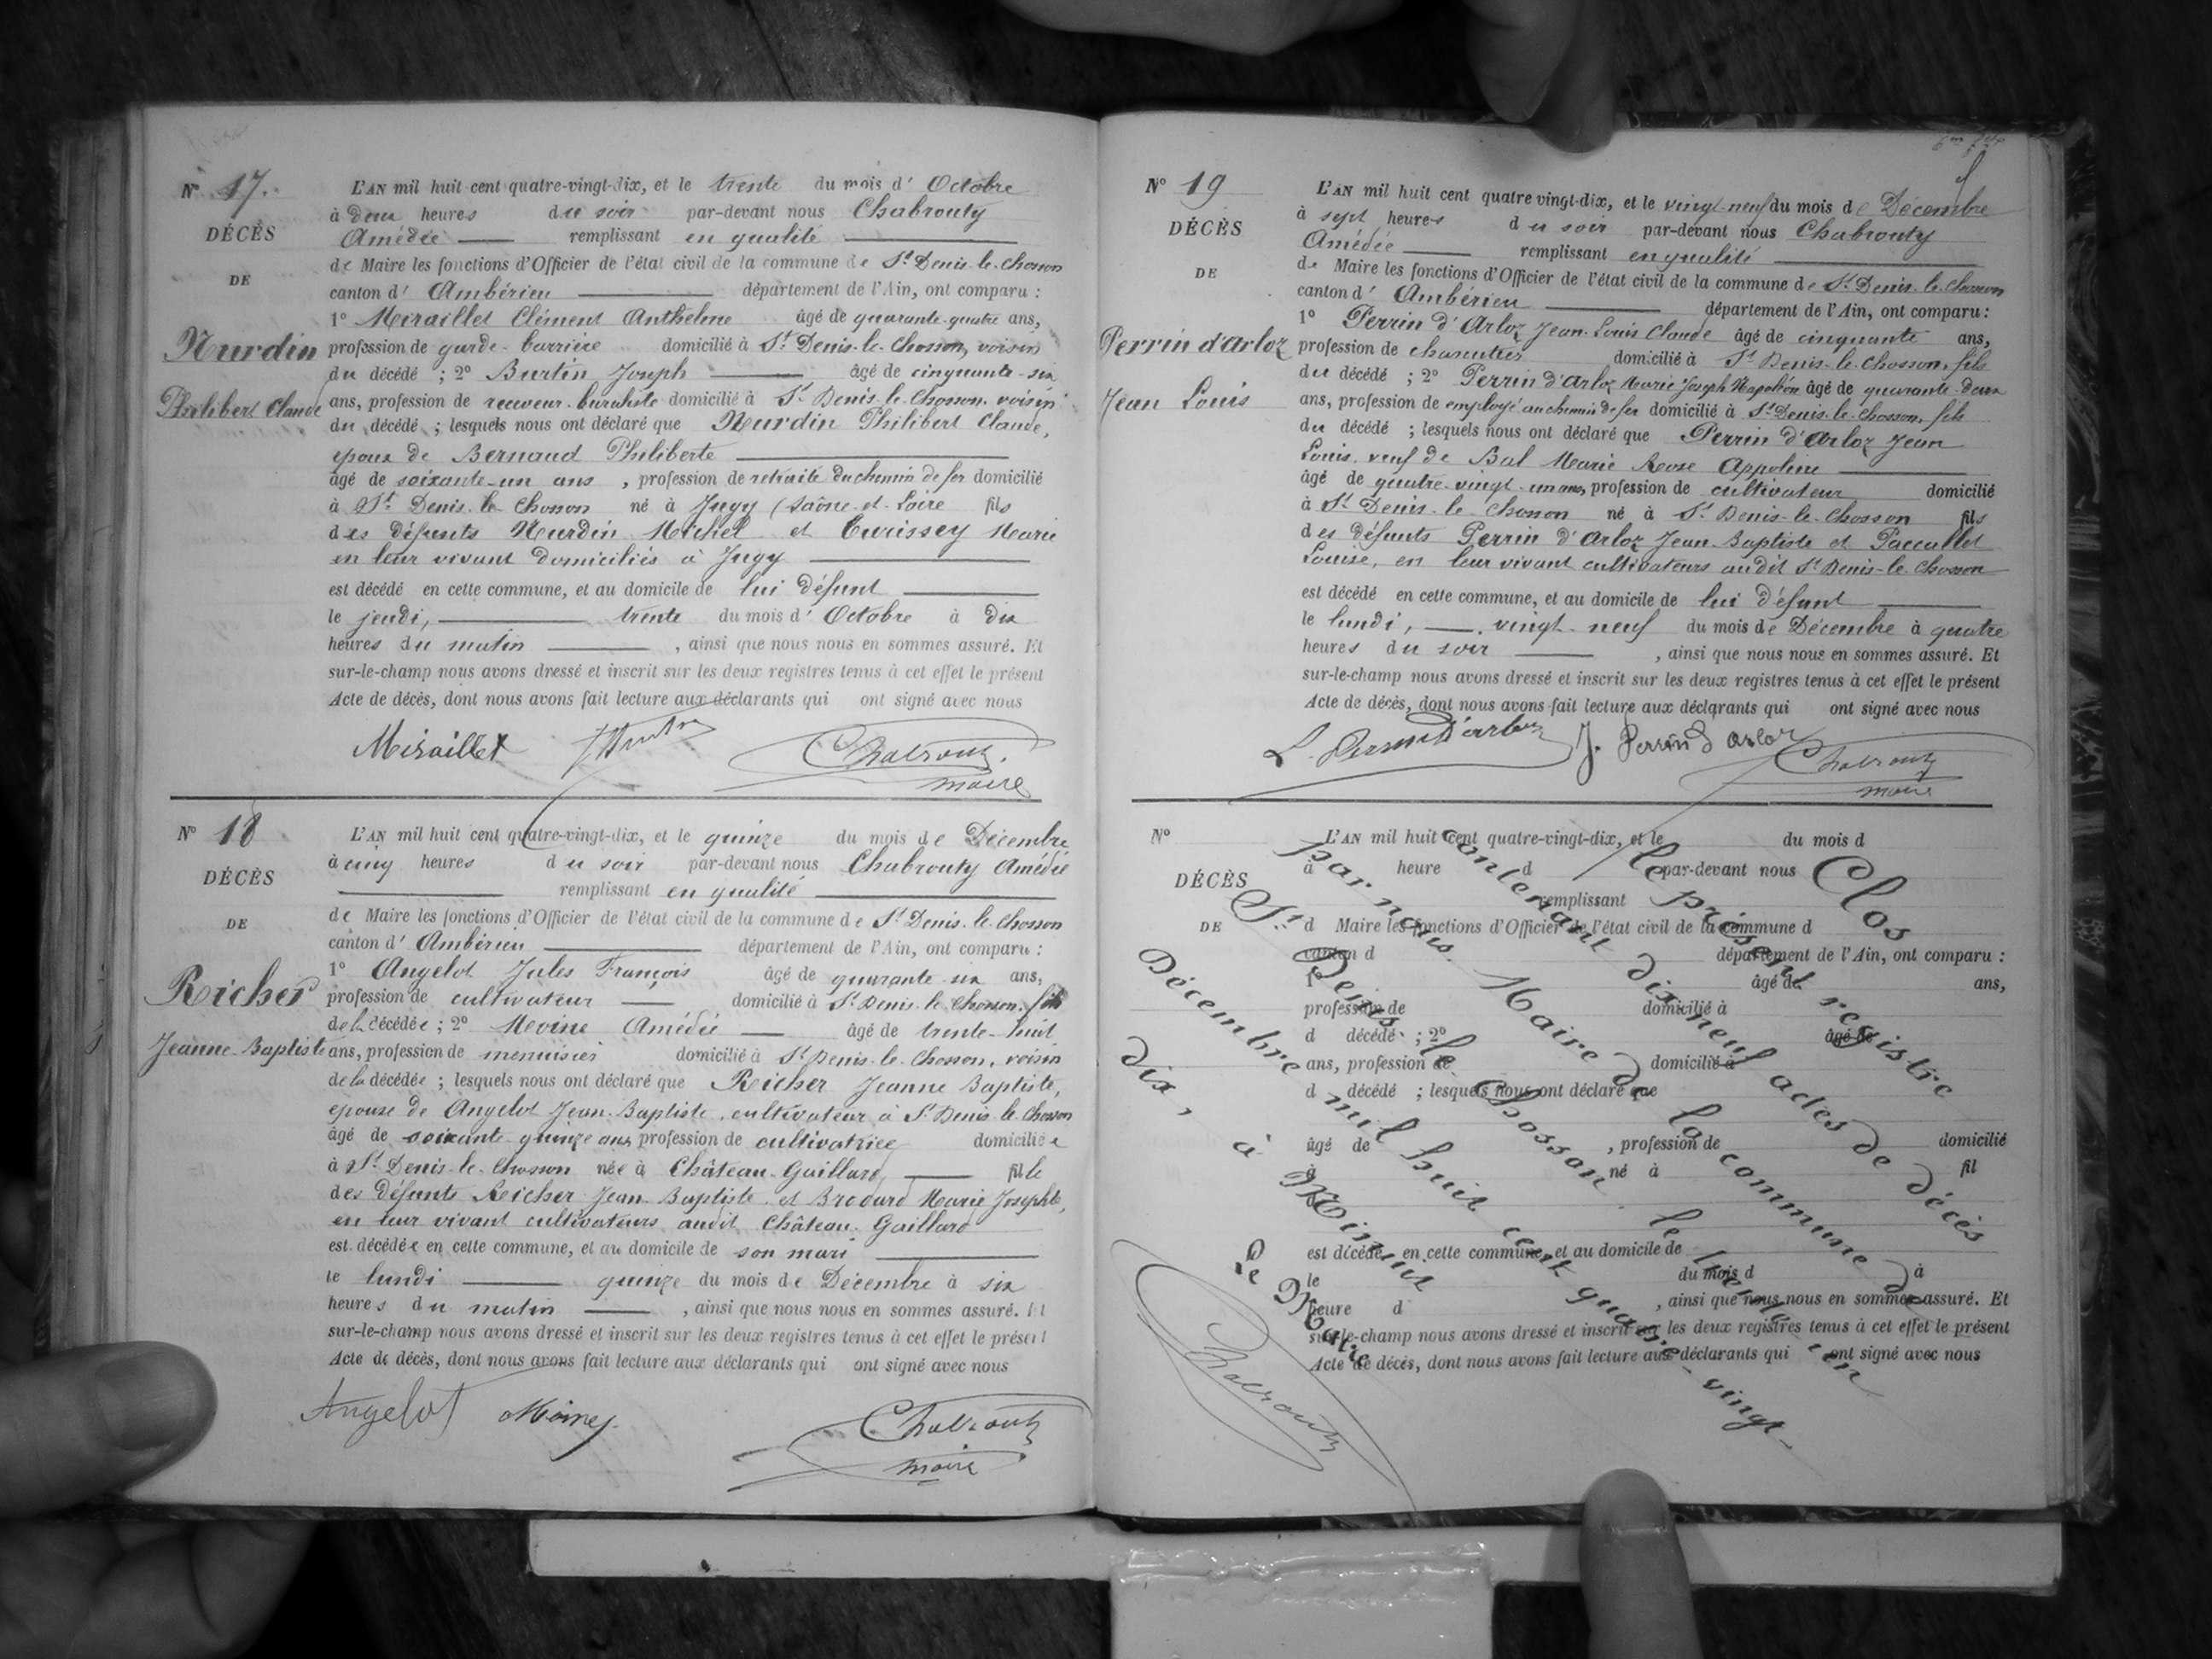 N° 17.
DÉCÈS
DE
Nurdin
Philibert Claude
L'AN mil huit cent quatre-vingt-dix, et le trente du mois d' Octobre
à deux heures du soir par-devant nous Chabrouty
Amédée remplissant en qualité
de Maire les fonctions d'Officier de l'état civil de la commune de St Denis-le-Chosson
canton d' Ambérieu département de l'Ain, ont comparu :
1° Miraillet Clément Anthelme âgé de quarante-quatre ans,
profession de garde-barrière domicilié à St Denis-le-Chosson, voisin
du décédé ; 2° Burtin Joseph âgé de cinquante-six
ans, profession de receveur-buraliste domicilié à St Denis-le-Chosson, voisin
du décédé ; lesquels nous ont déclaré que Nurdin Philibert Claude,
époux de Bernaud Philiberte
âgé de soixante-un ans , profession de retraité du chemin de fer domicilié
à St Denis-le-Chosson né à Jugy (Saône-et-Loire fils
des défunts Nurdin Michel et Marie
en leur vivant domiciliés à Jugy
est décédé en cette commune, et au domicile de lui défunt
le jeudi, trente du mois d' Octobre à dix
heures du matin , ainsi que nous nous en sommes assuré. Et
sur-le-champ nous avons dressé et inscrit sur les deux registres tenus à cet effet le présent
Acte de décès, dont nous avons fait lecture aux déclarants qui ont signé avec nous
Miraillet Chabrouty
maire
N° 18
DÉCÈS
DE
Richer
Jeanne-Baptiste
L'AN mil huit cent quatre-vingt-dix, et le quinze du mois de Décembre
à cinq heures du soir par-devant nous Chabrouty Amédée
remplissant en qualité
de Maire les fonctions d'Officier de l'état civil de la commune de St Denis-le-Chosson
canton d' Ambérieu département de l'Ain, ont comparu :
1° Angelot Jules François âgé de quarante-six ans,
profession de cultivateur domicilié à St Denis-le-Chosson, fils
de la décédée ; 2° Movine Amédée âgé de trente-huit
ans, profession de menuisier domicilié à St Denis-le-Chosson, voisin
de la décédée ; lesquels nous ont déclaré que Richer Jeanne Baptiste,
épouse de Angelot Jean-Baptiste, cultivateur à St Denis-le-Chosson
âgé de soixante-quinze ans, profession de cultivatrice domiciliée
à St Denis-le-Chosson née à Château-Gaillard, fille
des défunts Richer Jean-Baptiste et Brodard Marie Josephte,
en leur vivant cultivateurs audit Château-Gaillard
est décédée en cette commune, et au domicile de son mari
le lundi quinze du mois de Décembre à six
heures du matin , ainsi que nous nous en sommes assuré. Et
sur-le-champ nous avons dressé et inscrit sur les deux registres tenus à cet effet le présent
Acte de décès, dont nous avons fait lecture aux déclarants qui ont signé avec nous
Angelot Chabrouty
maire
N° 19
DÉCÈS
DE
Perrin d'Arloz
Jean Louis
L'AN mil huit cent quatre vingt-dix, et le vingt-neuf du mois de Décembre
à sept heures du soir par-devant nous Chabrouty
Amédée remplissant en qualité
de Maire les fonctions d'Officier de l'état civil de la commune de St Denis-le-Chosson
canton d' Ambérieu département de l'Ain, ont comparu :
1° Perrin d'Arloz Jean-Louis Claude âgé de cinquante ans,
profession de charretier domicilié à St Denis-le-Chosson, fils
du décédé ; 2° Perrin d'Arloz Marie Joseph Napoléon âgé de quarante-deux
ans, profession de employé au chemin de fer domicilié à St Denis-le-Chosson, fils
du décédé ; lesquels nous ont déclaré que Perrin d'Arloz Jean
Louis, veuf de Bal Marie Rose Appoline
âgé de quatre-vingt-un ans, profession de cultivateur domicilié
à St Denis-le-Chosson né à St Denis-le-Chosson fils
des défunts Perrin d'Arloz Jean-Baptiste et Paccallet
Louise, en leur vivant cultivateurs audit St Denis-le-Chosson
est décédé en cette commune, et au domicile de lui défunt
le lundi, vingt-neuf du mois de Décembre à quatre
heures du soir , ainsi que nous nous en sommes assuré. Et
sur-le-champ nous avons dressé et inscrit sur les deux registres tenus à cet effet le présent
Acte de décès, dont nous avons fait lecture aux déclarants qui ont signé avec nous
L. Perrin d'arloz J. Perrin d'arloz Chabrouty
maire
N°
DÉCÈS
DE
L'AN mil huit cent quatre-vingt-dix, et le du mois d
à heure d par-devant nous
remplissant
d Maire les fonctions d'Officier de l'état civil de la commune d
canton d département de l'Ain, ont comparu :
1° âgé de ans,
profession de domicilié à
d décédé ; 2° âgé de
ans, profession de domicilié à
d décédé ; lesquels nous ont déclaré que
âgé de , profession de domicilié
à né à fil
est décédé en cette commune, et au domicile de
le du mois d à
heure d , ainsi que nous nous en sommes assuré. Et
sur-le-champ nous avons dressé et inscrit sur les deux registres tenus à cet effet le présent
Acte de décès, dont nous avons fait lecture aux déclarants qui ont signé avec nous
Clos
le présent registre
contenant dix neuf actes de décès
par nous, Maire de la commune de
St Denis-le-Chosson le trente-un
Décembre mil huit cent quatre-vingt-
dix, à Minuit
Le Maire
Chabrouty